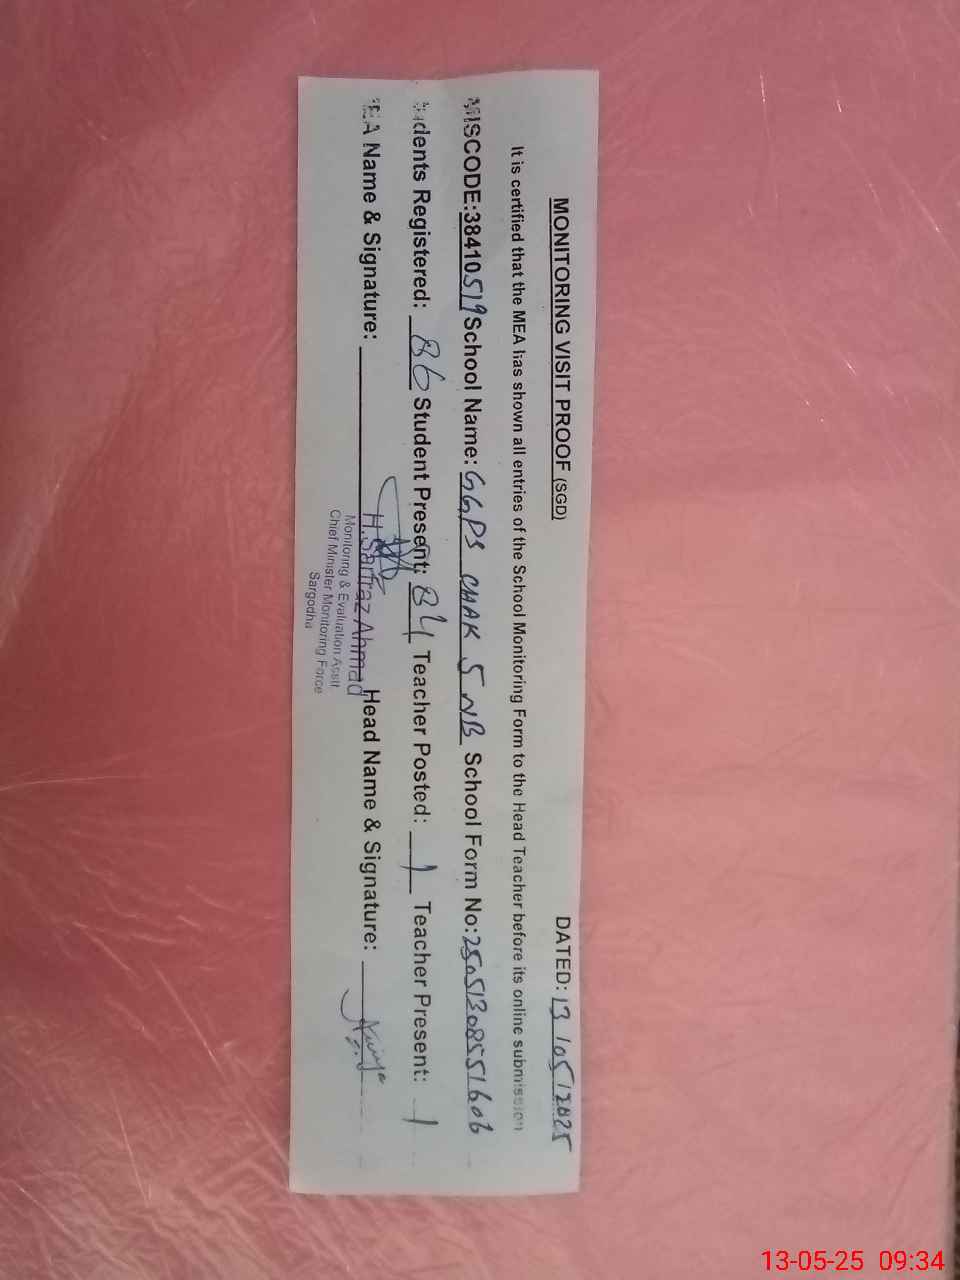 MONITORING VISIT PROOF (SGD) DATED: 13/05/2025
It is certified that the MEA has shown all entries of the School Monitoring Form to the Head Teacher before its online submission
MISCODE:38410519 School Name: GGPS CHAK 5 NB School Form No: 25051308551606
Students Registered: 86 Student Present: 84 Teacher Posted: 1 Teacher Present: 1
MEA Name & Signature: H.Sarfraz Ahmad Head Name & Signature:
Monitoring & Evaluation Asstt.
Chief Minister Monitoring Force
Sargodha
13-05-25 09:34